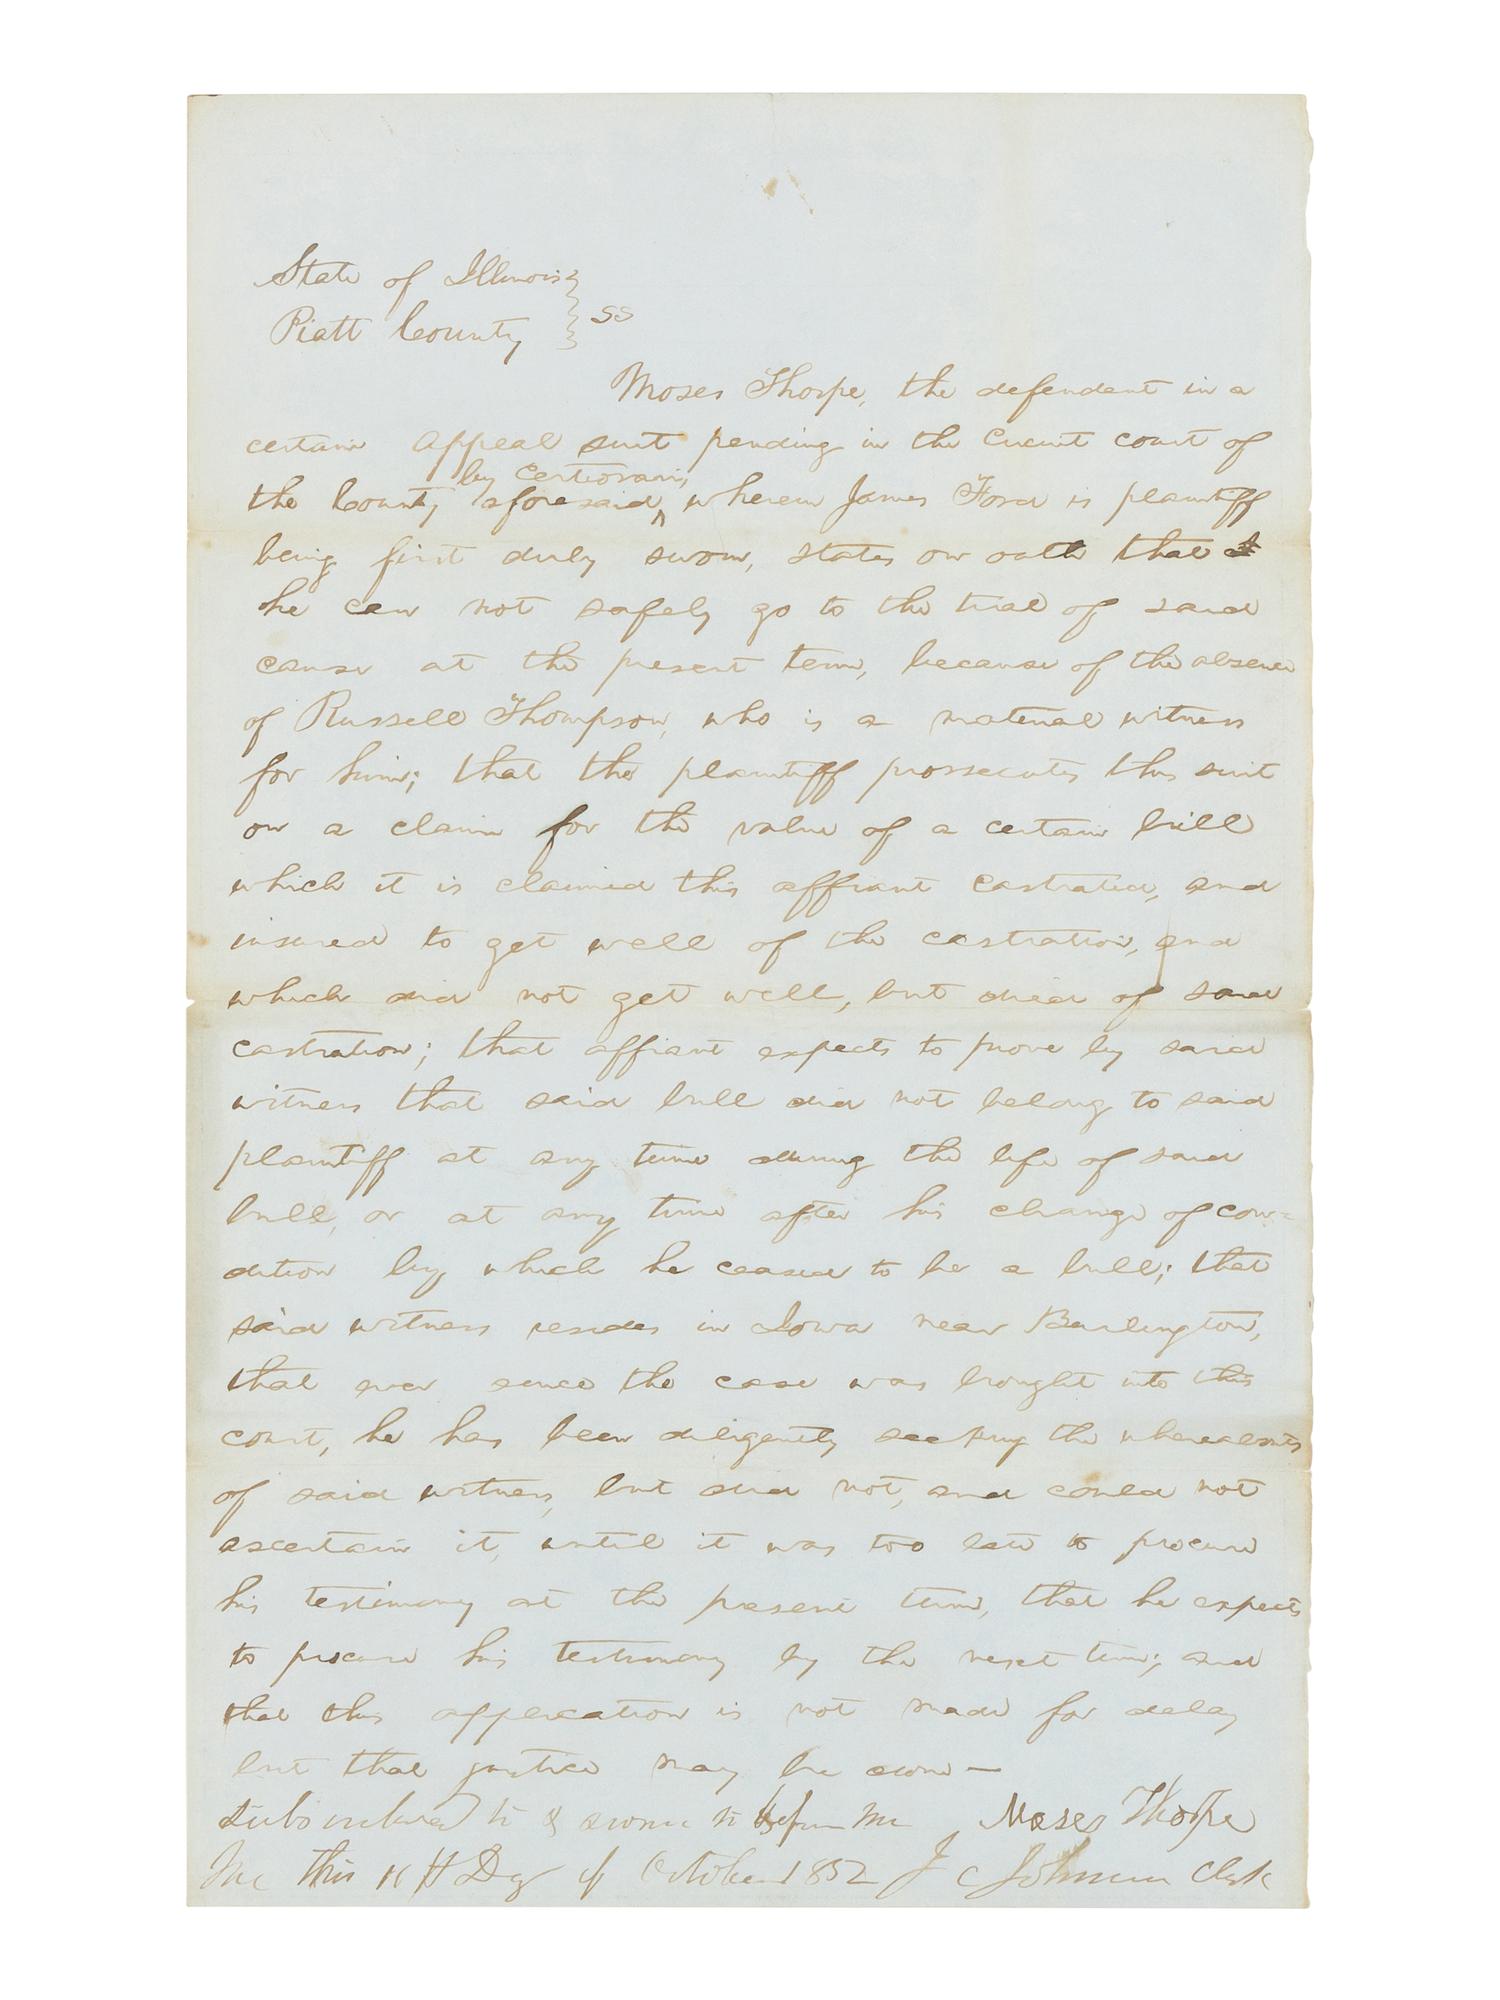 State of Illinois }
Piatt County } SS
Moses Thorpe, the defendent in a
certain appeal suit pending in the Circuit court of
by Certiorari,
the County aforesaid ^ wherein James Ford is plaintiff
being first duly sworn, states on oath that
he can not safely go to the trial of said
cause at the present term, because of the absence
of Russell Thompson, who is a material witness
for him; that the plaintiff prossecutes this suit
on a claim for the value of a certain bull
which it is claimed this affiant castrated, and
insured to get well of the castration, and
which did not get well, but died of said
castration; that affiant expects to prove by said
witness that said bull did not belong to said
plaintiff at any time during the life of said
bull, or at any time after his change of con=
dition by which he ceased to be a bull; that
said witness resides in Iowa near Burlington,
that ever since the case was brought into this
court, he has been diligently seeking the whereabouts
of said witness, but did not, and could not
ascertain it, until it was too late to procure
his testimony at the present term, that he expects
to procure his testimony by the next term; and
that this application is not made for delay
but that justice may be done—
Subscribed to & sworn to before me Moses Thorpe
me this Day of October 1852 J C Johnson Clerk